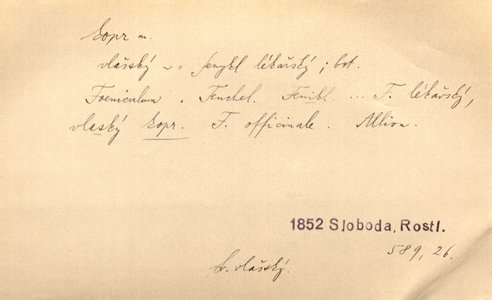 kopr m.
vlašský ~ = fenykl lékařský; bot.
Foeniculum. Fenchel. Fenikl ... F. lékařský,
vlaský kopr. F. officinale. Allion.
1852 Sloboda, Rostl.
589, 26.
k. vlašský.